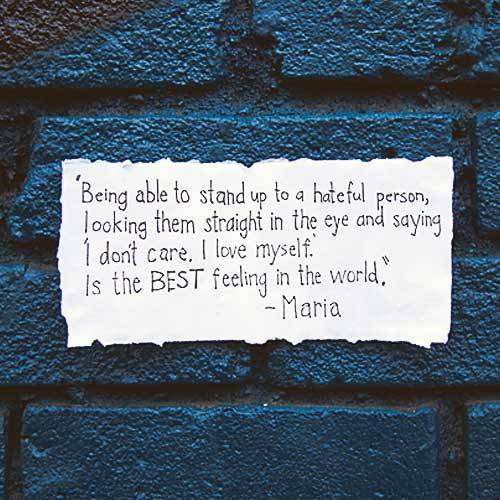 "Being able to stand up to a hateful person,
looking them straight in the eye and saying
'I don't care. I love myself.'
Is the BEST feeling in the world."
- Maria